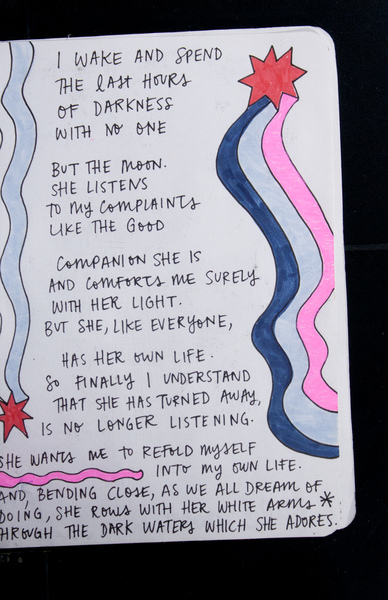 I WAKE AND SPEND
THE LAST HOURS
OF DARKNESS
WITH NO ONE
BUT THE MOON.
SHE LISTENS
TO MY COMPLAINTS
LIKE THE GOOD
COMPANION SHE IS
AND COMFORTS ME SURELY
WITH HER LIGHT.
BUT SHE, LIKE EVERYONE,
HAS HER OWN LIFE.
SO FINALLY I UNDERSTAND
THAT SHE HAS TURNED AWAY,
IS NO LONGER LISTENING.
SHE WANTS ME TO REFOLD MYSELF
INTO MY OWN LIFE.
AND, BENDING CLOSE, AS WE ALL DREAM OF
DOING, SHE ROWS WITH HER WHITE ARMS *
THROUGH THE DARK WATERS WHICH SHE ADORES.